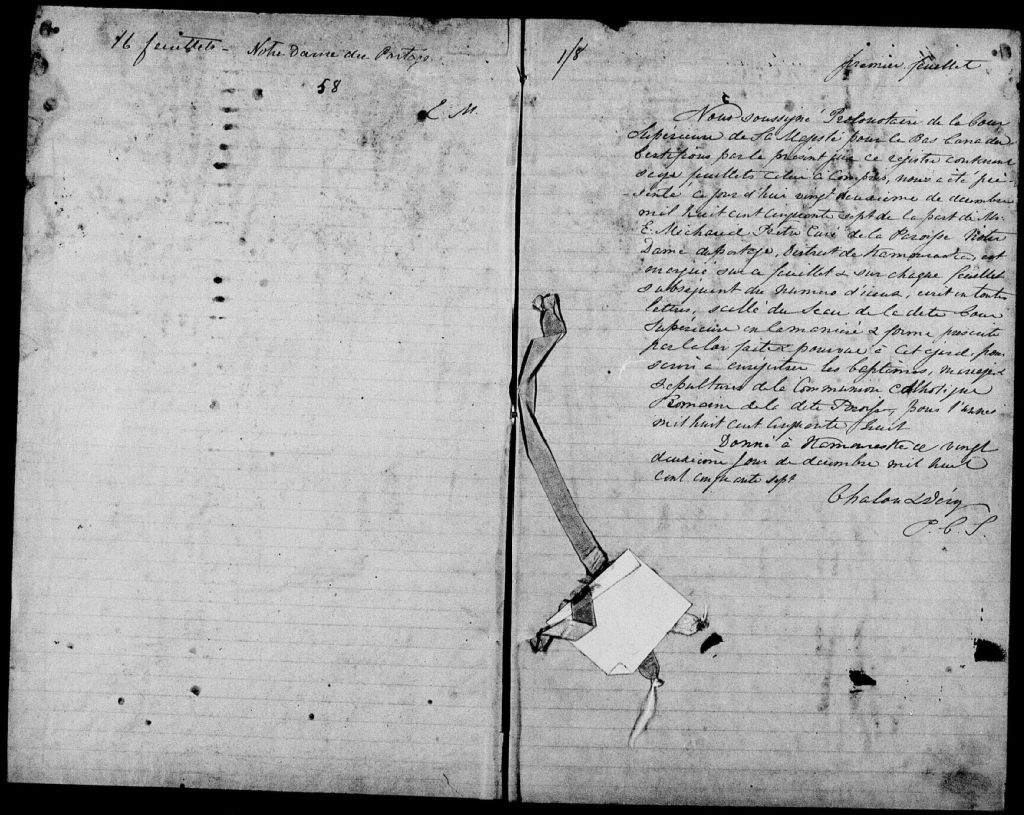 16 feuillets - Notre Dame du Portage
58
E. M.
1/8
premier feuillet
Nous soussigné Protonotaire de la Cour
Supérieure de Sa Majesté pour le Bas Canada
Certifions par le présent que ce régistre contenant
seize feuillets celui ci compris, nous a été pré
senté ce jour d'hui vingt deuxième de decembre
mil huit cent cinquante sept de la part de Mr
E. Michaud Prêtre Curé de la Paroisse Notre
Dame du portage, District de Kamouraska, est
marqué sur ce feuillet & sur chaque feuillet
subséquent du numéro d'iceux, écrit en toutes
lettres, scellé du Sceau de la dite Cour
Supérieure en la manière & forme prescrite
par la loi faite & pourvue à cet égard, pour
servir à enrégistrer les baptêmes, mariages
sépultures de la Communion catholique
Romaine de la dite Paroisse, pour l'année
mil huit cent cinquante huit
Donné à Kamouraska ce vingt
deuxième jour de decembre mil huit
cent cinquante sept
P. C. S.